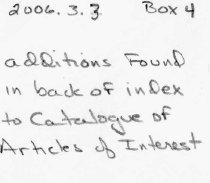 2006.3.3 Box 4
additions Found
in back of index
to Catalogue of
Articles of Interest